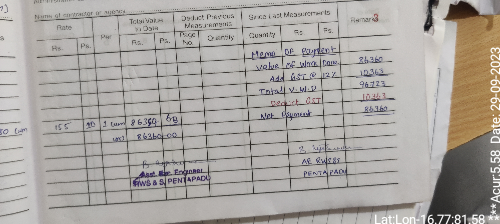 Name of contractor or agency
Rate Per Total Value to Date Deduct Previous Measurements Since Last Measurements Remarks
Rs. Ps. Rs. Ps. Page No. Quantity Quantity Rs. Ps.
Memo of Payment
Value of Work Done 86360
Add GST @ 12% 10363
Total V.W.D 96723
Deduct GST 10363
Net Payment 86360
155 1 cum 86360
86360 00
Engineer
RWS & S, PENTAPADU
AE RWSS
PENTAPADU
Date:22-09-2023
Lat:Lon-16.77:81.58